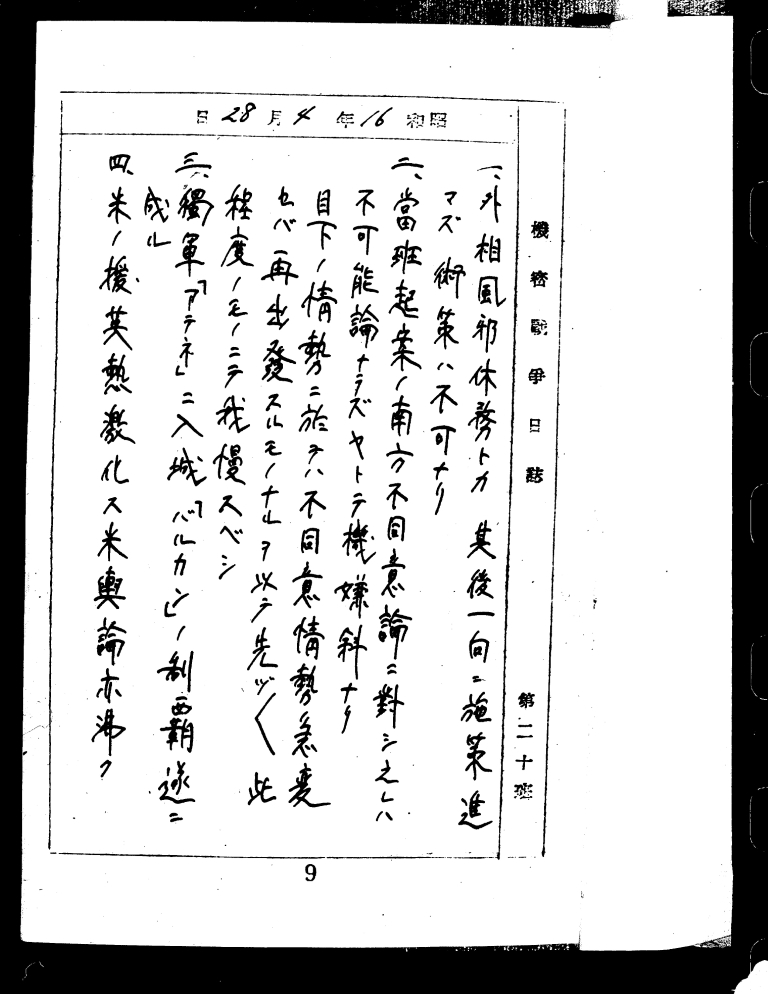 機密戰爭日誌 第二十班
昭和16年4月28日
一、外相風邪休務トカ 其後一向ニ施策進
マズ 術策ハ不可ナリ
二、當班起案ノ南方不同意論ニ對シ之レハ
不可能論ナラズヤトテ機嫌斜ナリ
目下ノ情勢ニ於テハ不同意情勢急変
セバ再出發スルモノナルヲ以テ先ヅ〱此
程度ノモノニテ我慢スベシ
三、獨軍「アテネ」ニ入城「バルカン」ノ制覇遂ニ
成ル
四、米ノ援英熱激化ス米輿論亦沸ク
9